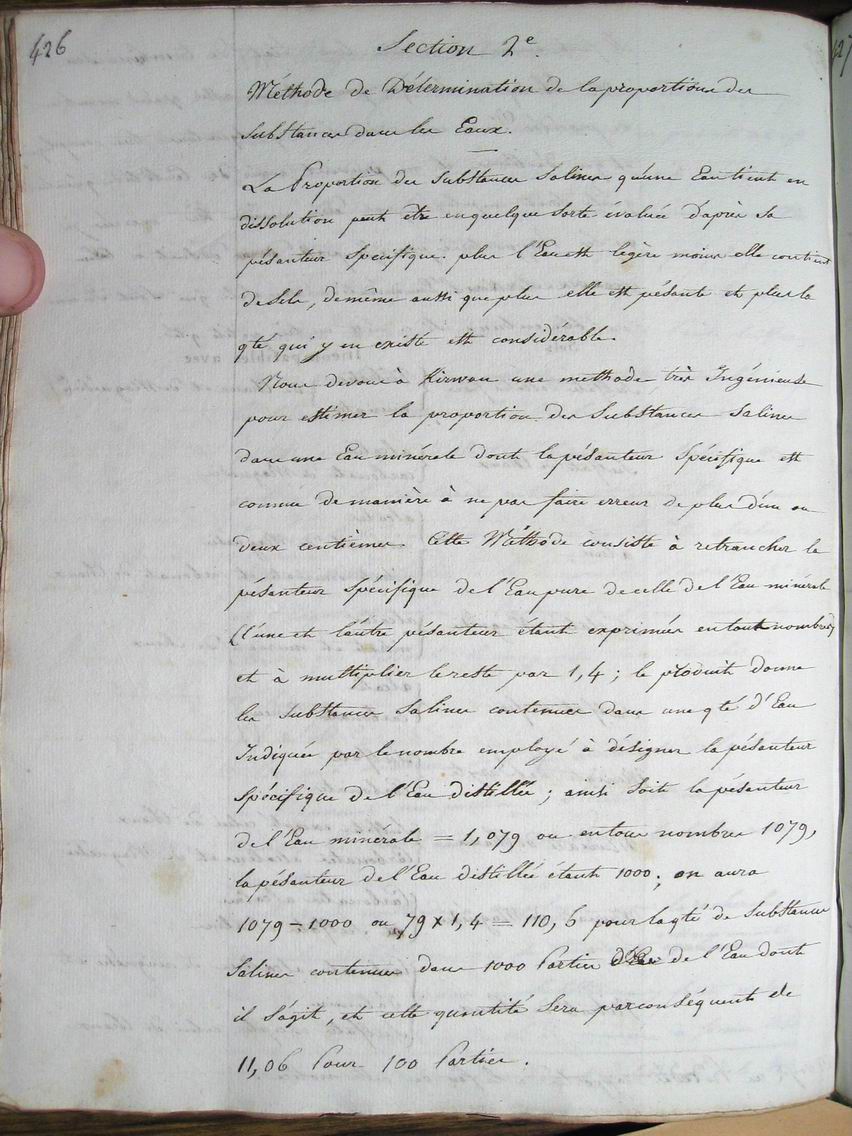 426
Section 2e.
Méthode de Détermination de la proportion des
substances dans les Eaux.
La Proportion des substances salines qu'une Eau tient en
dissolution peut etre en quelque sorte évaluée d'après sa
pésanteur spécifique. plus l'Eau est legère moins elle contient
de sels, de même aussi que plus elle est pésante et plus la
qté qui y en existe est considérable.
Nous devons à Kirwan une methode très Ingénieuse
pour estimer la proportion des substances salines
dans une Eau minérale dont la pésanteur spécifique est
connue de manière à ne pas faire erreur de plus d'un ou
deux centièmes. Cette Méthode consiste à retrancher la
pésanteur spécifique de l'Eau pure de celle de l'Eau minérale
(l'une et l'autre pésanteur étant exprimées en tout nombres)
et à multiplier le reste par 1,4; le produit donne
les substances salines contenues dans une qté d'Eau
Indiquée par le nombre employé à désigner la pésanteur
spécifique de l'Eau distillée; ainsi soit la pésanteur
de l'Eau minérale = 1,079 ou en tous nombres 1079,
la pésanteur de l'Eau distillée étant 1000; on aura
1079 - 1000 ou 79 x 1,4 = 110,6 pour la qté de substances
salines contenues dans 1000 Parties de l'Eau dont
il s'agit, et cette quantité sera par conséquent de
11,06 Pour 100 Parties.
427